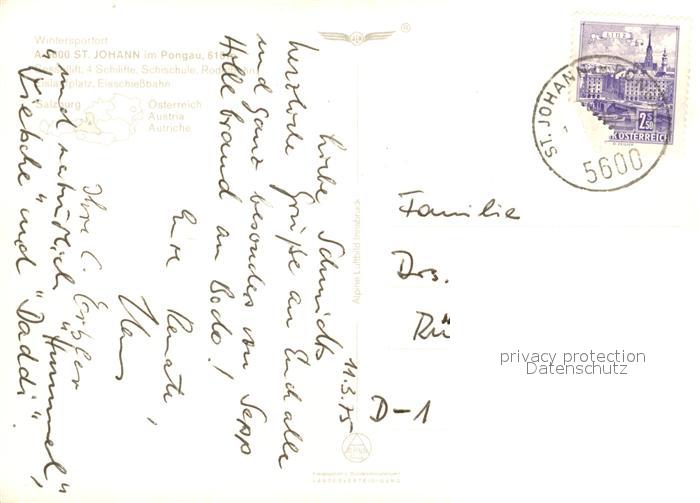 Wintersportort
A-5600 ST. JOHANN im Pongau, 61
4 Schilifte, Schischule,
Eisschießbahn
Salzburg
Österreich
Austria
Autriche
11.3.75
Liebe Schmidts
herzliche Grüße an Euch alle
und ganz besonders von Sepp
Hollebrand an Bodo!
Eure Renate,
Hans
Ihre C.
und natürlich "Hummel",
und "Daddi".
Alpine Luftbild Innsbruck
ALPINE
LANDESVERTEIDIGUNG
LINZ
2.50
ÖSTERREICH
ST. JOHANN
5600
Familie
Drs.
Rü
D-1
privacy protection
Datenschutz